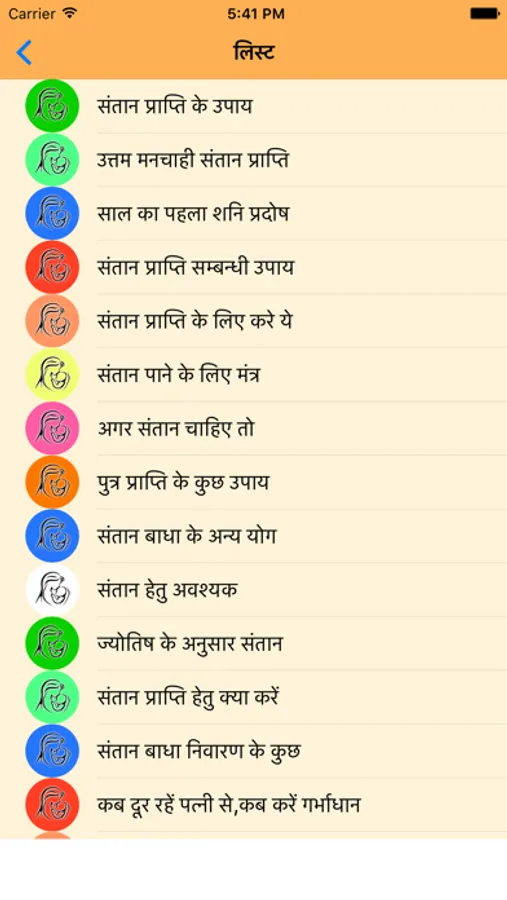 Carrier 5:41 PM
लिस्ट
संतान प्राप्ति के उपाय
उत्तम मनचाही संतान प्राप्ति
साल का पहला शनि प्रदोष
संतान प्राप्ति सम्बन्धी उपाय
संतान प्राप्ति के लिए करे ये
संतान पाने के लिए मंत्र
अगर संतान चाहिए तो
पुत्र प्राप्ति के कुछ उपाय
संतान बाधा के अन्य योग
संतान हेतु अवश्यक
ज्योतिष के अनुसार संतान
संतान प्राप्ति हेतु क्या करें
संतान बाधा निवारण के कुछ
कब दूर रहें पत्नी से,कब करें गर्भाधान